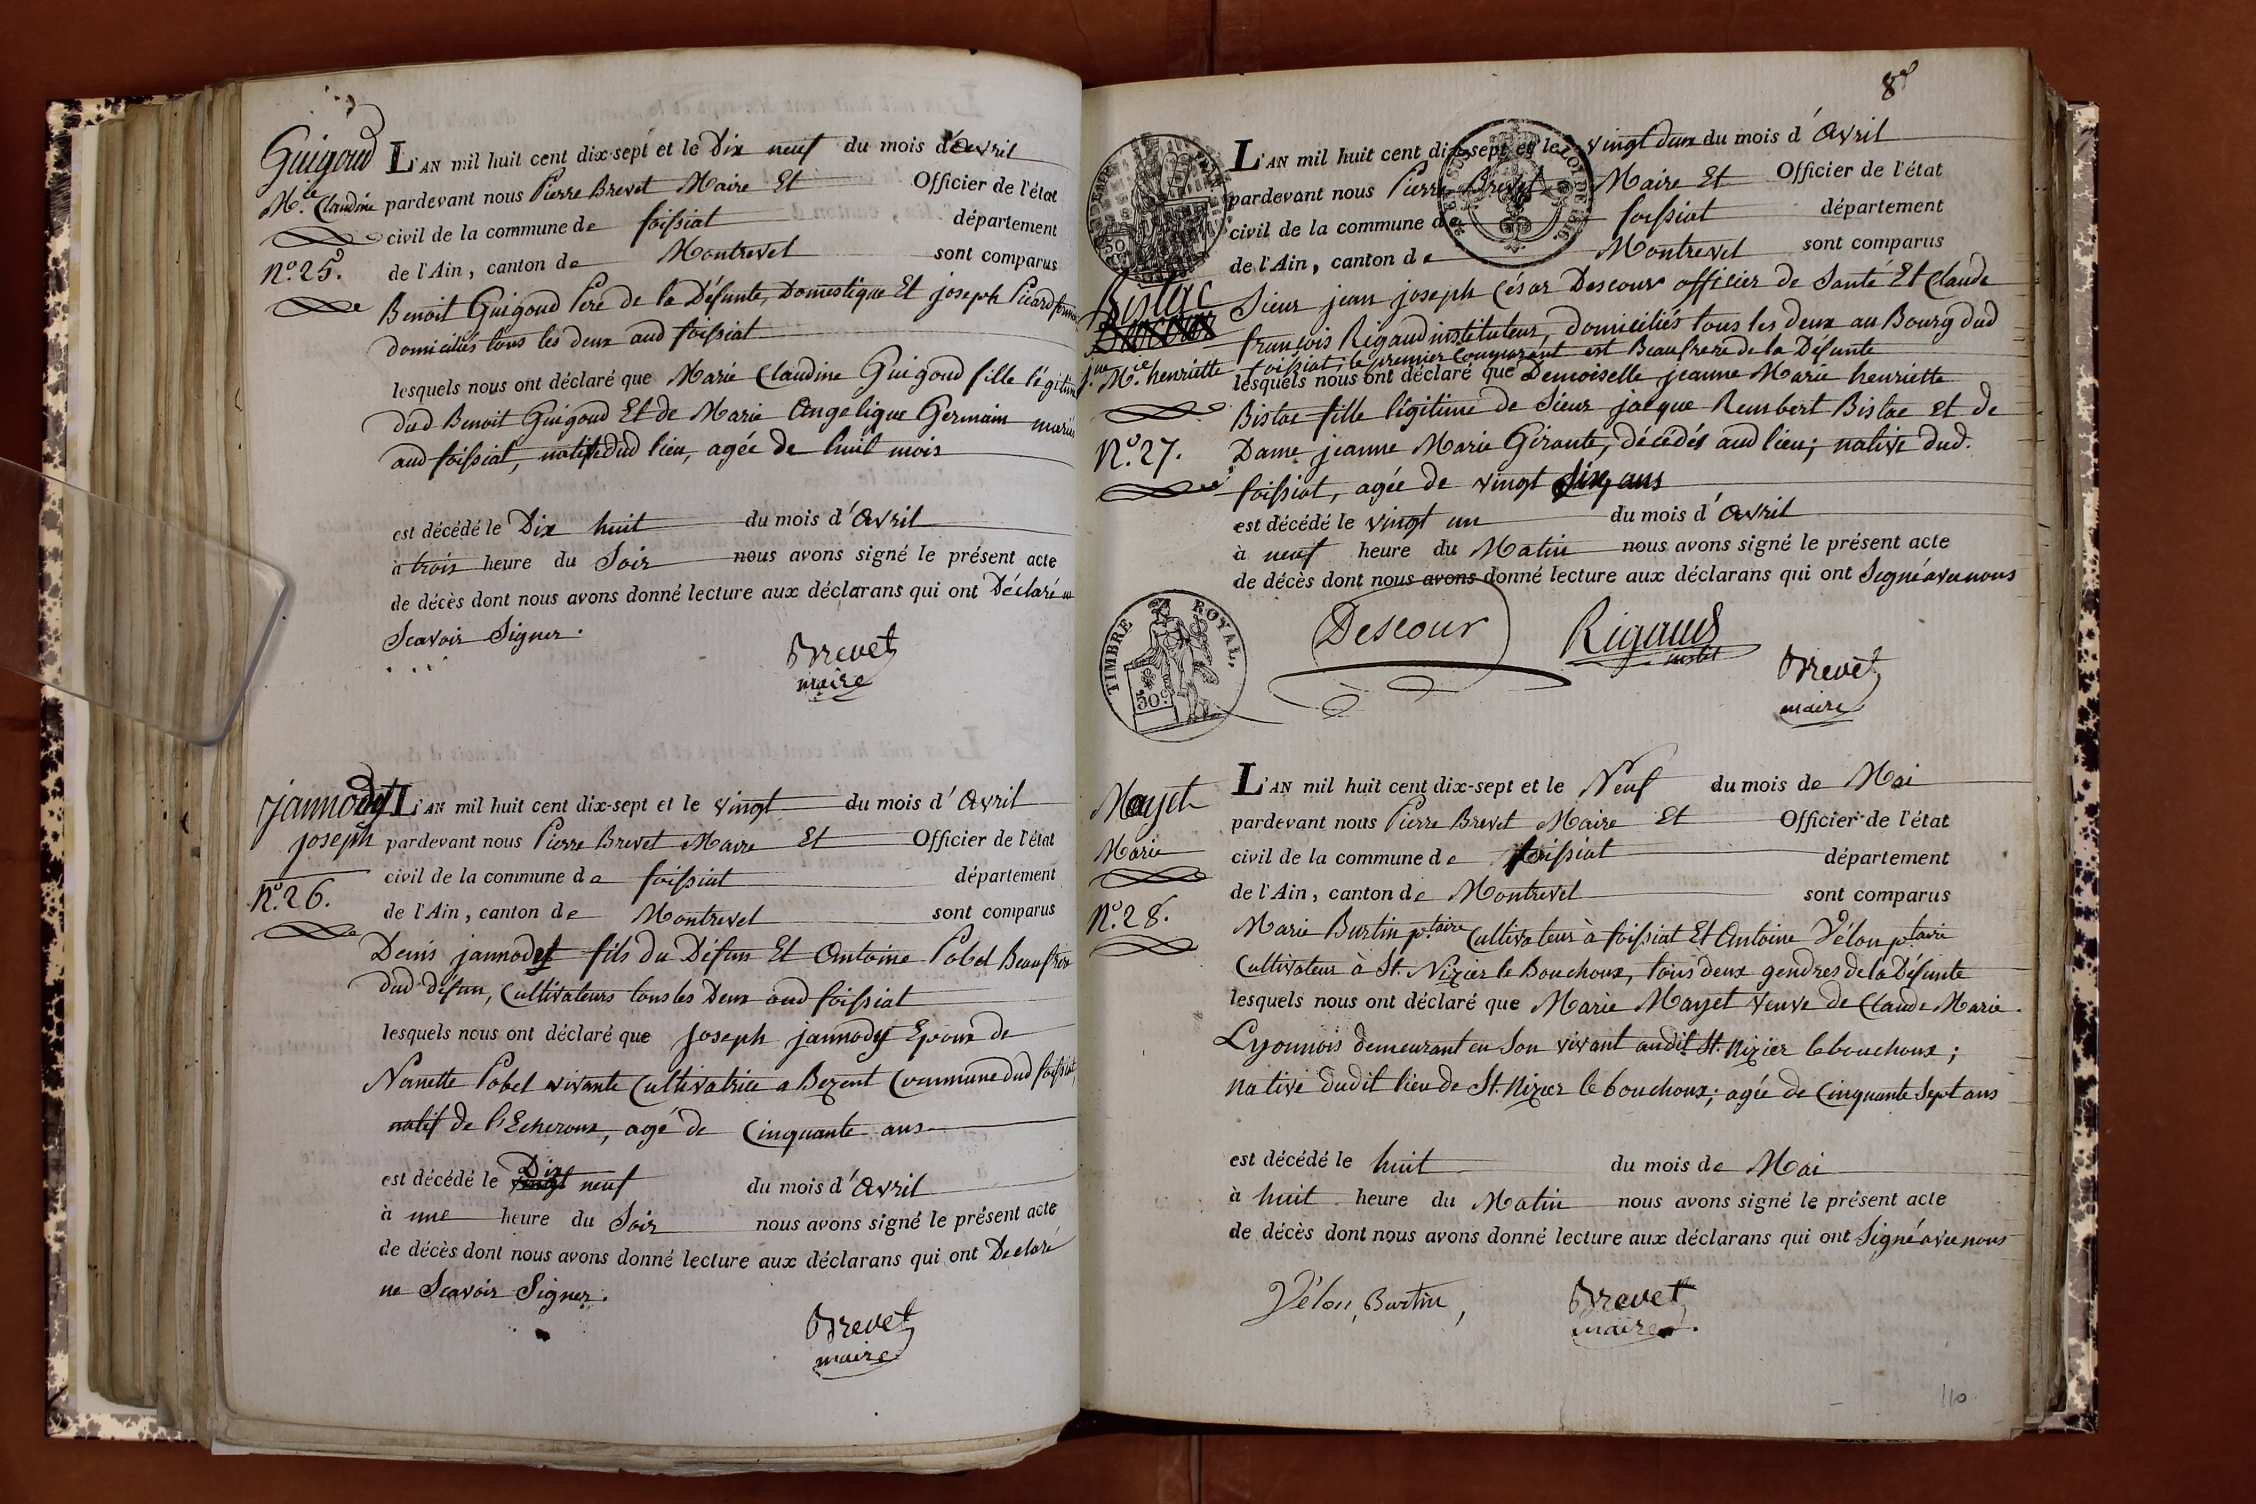 Guigoud
M.ie Claudine
N.o 25.
L'AN mil huit cent dix-sept et le Dix neuf du mois d'Avril
pardevant nous Pierre Brevet Maire Et Officier de l'état
civil de la commune de foissiat département
de l'Ain, canton de Montrevel sont comparus
Benoit Guigoud Pere de la Défunte, Domestique Et joseph Picard
domiciliés tous les deux aud foissiat
lesquels nous ont déclaré que Marie Claudine Guigoud fille légitime
dud Benoit Guigoud Et de Marie Angelique Germain mariés
aud foissiat, native dud lieu, agée de huit mois
est décédé le Dix huit du mois d'Avril
à trois heure du Soir nous avons signé le présent acte
de décès dont nous avons donné lecture aux déclarans qui ont Déclaré ne
Scavoir Signer.
Brevet
maire
jannodet
joseph
N.o 26.
L'AN mil huit cent dix-sept et le vingt du mois d'Avril
pardevant nous Pierre Brevet Maire Et Officier de l'état
civil de la commune de foissiat département
de l'Ain, canton de Montrevel sont comparus
Denis jannodet fils du Défun Et Antoine Pobel Beaufrere
dud défun, Cultivateurs tous les Deux aud foissiat
lesquels nous ont déclaré que joseph jannody Epoux de
Nanette Pobel vivante Cultivatrice a Bezent Commune dud foissiat,
natif de l'Echeroux, agé de Cinquante ans
est décédé le Dix neuf du mois d'Avril
à une heure du Soir nous avons signé le présent acte
de décès dont nous avons donné lecture aux déclarans qui ont Declaré
ne Scavoir Signer.
Brevet
maire
8e
Bistac
j.ne M.ie henriette
N.o 27.
L'AN mil huit cent dix-sept et le vingt deux du mois d'Avril
pardevant nous Pierre Brevet Maire Et Officier de l'état
civil de la commune de foissiat département
de l'Ain, canton de Montrevel sont comparus
Sieur jean joseph César Descour officier de Santé Et Claude
françois Rigaud instituteur, domiciliés tous les deux au Bourg dud
foissiat, le premier Comparant est Beaufrere de la Défunte
lesquels nous ont déclaré que Demoiselle jeanne Marie henriette
Bistac fille légitime de Sieur jacque Rembert Bistac et de
Dame jeanne Marie Girante, décédés aud lieu; native dud.
foissiat, agée de vingt six ans
est décédé le vingt un du mois d'Avril
à neuf heure du Matin nous avons signé le présent acte
de décès dont nous avons donné lecture aux déclarans qui ont Signé avec nous
TIMBRE ROYAL,
50.c
Descour
Rigaud
instit
Brevet
maire
Mayet
Marie
N.o 28.
L'AN mil huit cent dix-sept et le Neuf du mois de Mai
pardevant nous Pierre Brevet Maire Et Officier de l'état
civil de la commune de foissiat département
de l'Ain, canton de Montrevel sont comparus
Marie Burtin p.taire Cultivateur à foissiat Et Antoine Vélon p.taire
Cultivateur à St. Nizier le Bouchoux, tous deux gendres de la Défunte
lesquels nous ont déclaré que Marie Mayet veuve de Claude Marie
Lyonnois demeurant en Son vivant audit St. Nizier le bouchoux;
native dudit lieu de St. Nizier le bouchoux; agée de Cinquante Sept ans
est décédé le huit du mois de Mai
à huit heure du Matin nous avons signé le présent acte
de décès dont nous avons donné lecture aux déclarans qui ont Signé avec nous
Vélon, Burtin,
Brevet
maire.
110